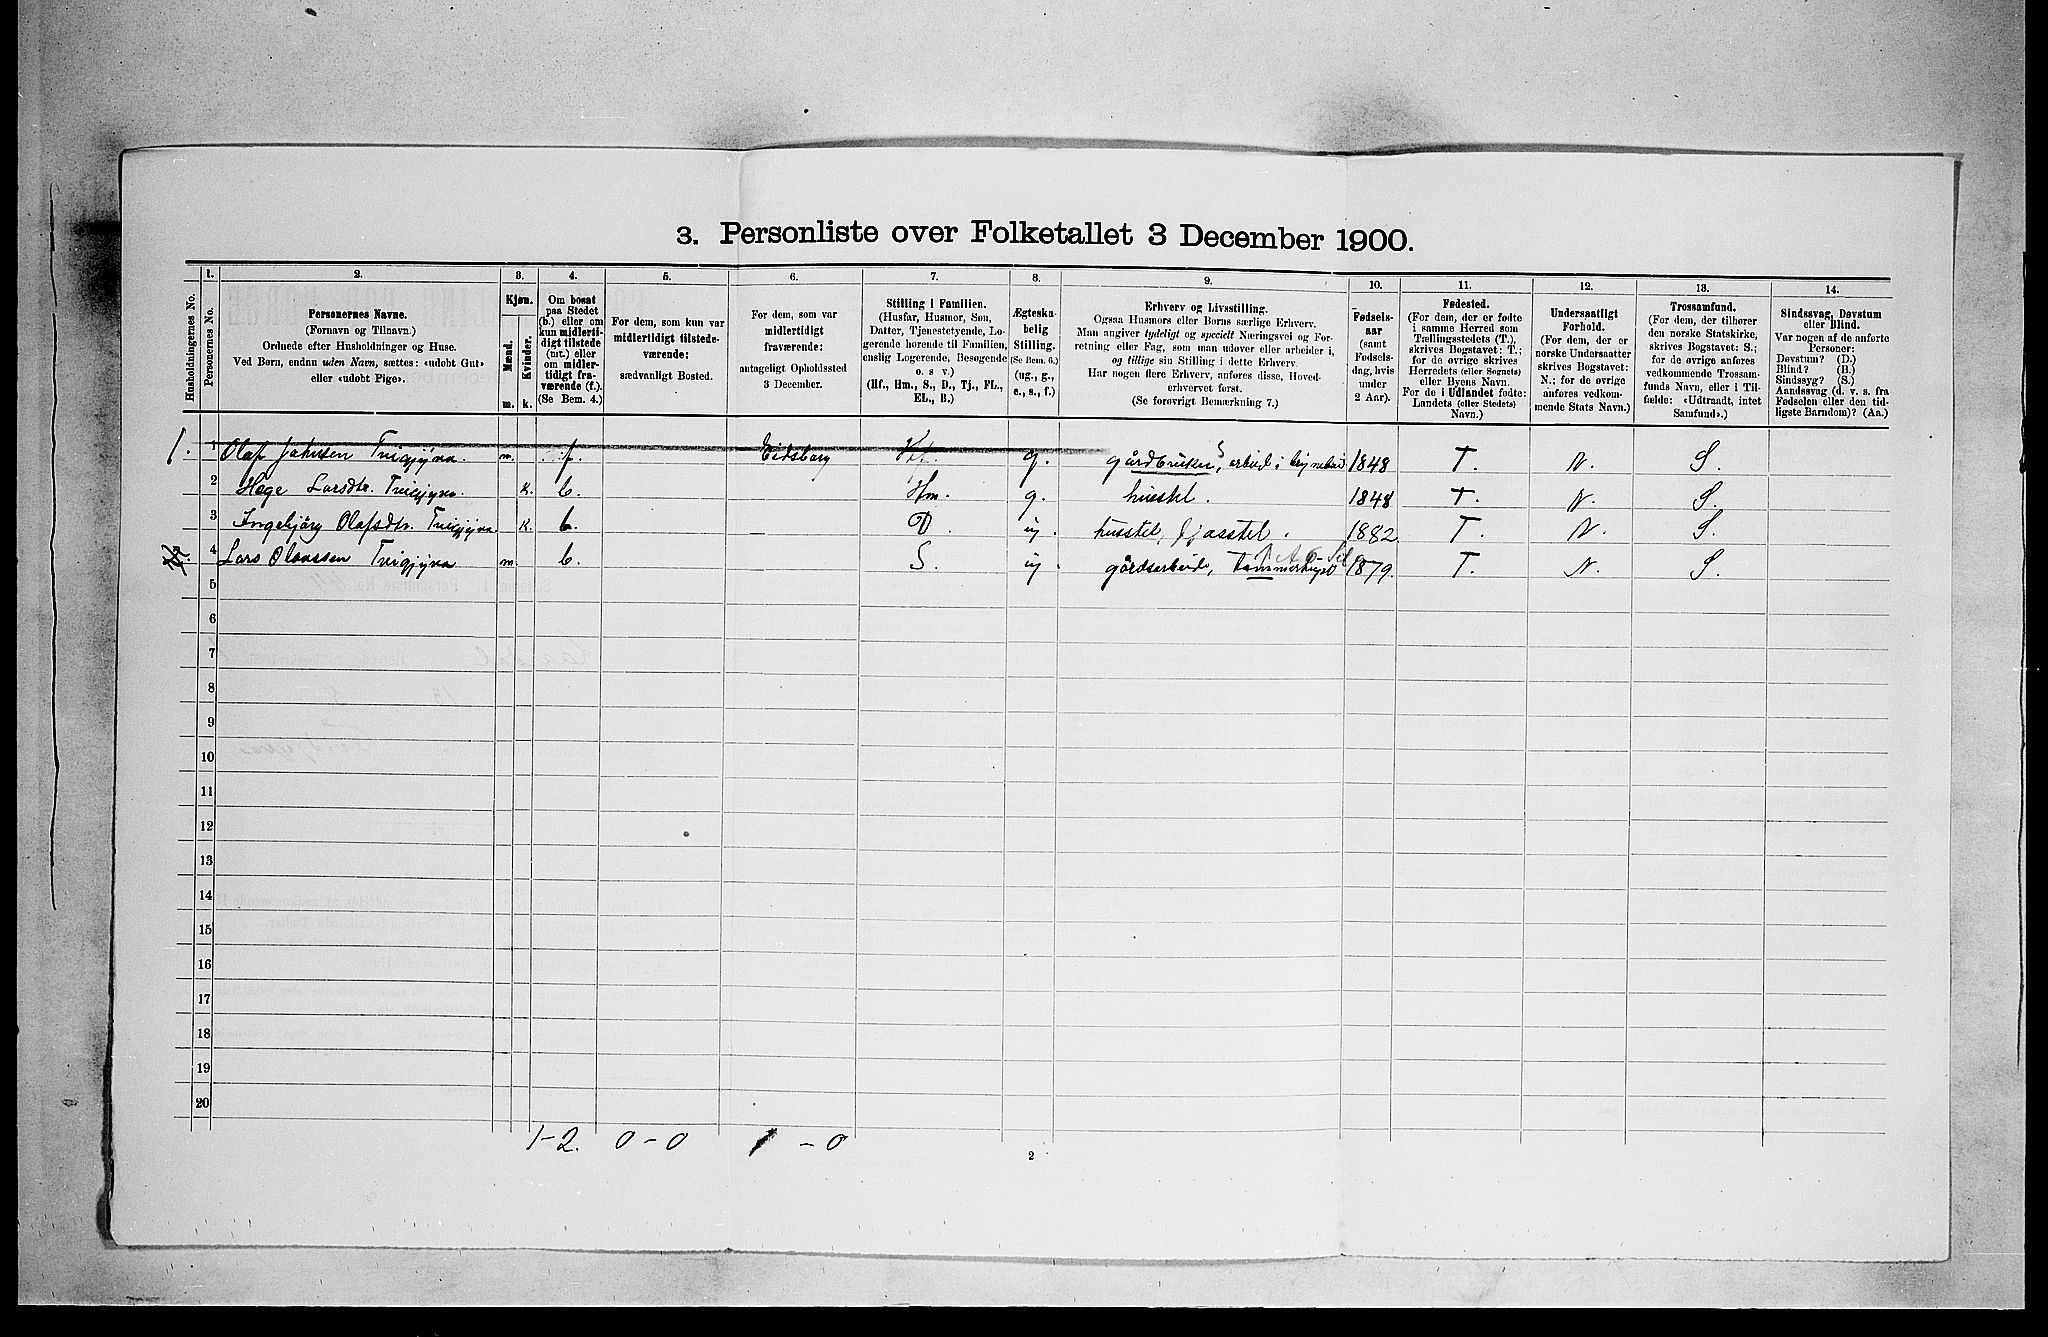 3. Personliste over Folketallet 3 December 1900.
1. 2. 3. 4. 5. 6. 7. 8. 9. 10. 11. 12. 13. 14.
Husholdningernes No.
Personernes No.
Personernes Navne.
(Fornavn og Tilnavn.)
Ordnede efter Husholdninger og Huse.
Ved Børn, endnu uden Navn, sættes: «udøbt Gut»
eller «udøbt Pige».
Kjøn.
Mænd.
Kvinder.
m. k.
Om bosat
paa Stedet
(b.) eller om
kun midlerti-
digt tilstede
(mt.) eller
om midler-
tidigt fra-
værende (f.).
(Se Bem. 4.)
For dem, som kun var
midlertidigt tilstede-
værende:
sædvanligt Bosted.
For dem, som var
midlertidigt
fraværende:
antageligt Opholdssted
3 December.
Stilling i Familien.
(Husfar, Husmor, Søn,
Datter, Tjenestetyende, Lo-
gerende hørende til Familien,
enslig Logerende, Besøgende
o. s. v.)
(Hf., Hm., S., D., Tj., FL.,
EL., B.)
Ægteska-
belig
Stilling.
(Se Bem. 6.)
(ug., g.,
e., s., f.)
Erhverv og Livsstilling.
Ogsaa Husmors eller Børns særlige Erhverv.
Man angiver tydeligt og specielt Næringsvei og For-
retning eller Fag, som man udøver eller arbeider i,
og tillige sin Stilling i dette Erhverv.
Har nogen flere Erhverv, anføres disse, Hoved-
erhvervet først.
(Se forøvrigt Bemærkning 7.)
Fødsels-
aar
(samt
Fødsels-
dag, hvis
under
2 Aar).
Fødested.
(For dem, der er fødte
i samme Herred som
Tællingsstedets (T.),
skrives Bogstavet: T.;
for de øvrige skrives
Herredets (eller Sognets)
eller Byens Navn.
For de i Udlandet fødte:
Landets (eller Stedets)
Navn.)
Undersaatligt
Forhold.
(For dem, der er
norske Undersaatter
skrives Bogstavet:
N.; for de øvrige
anføres vedkom-
mende Stats Navn.)
Trossamfund.
(For dem, der tilhører
den norske Statskirke,
skrives Bogstavet: S.;
for de øvrige anføres
vedkommende Trossam-
funds Navn, eller i Til-
fælde: «Udtraadt, intet
Samfund».)
Sindssvag, Døvstum
eller Blind.
Var nogen af de anførte
Personer:
Døvstum? (D.)
Blind? (B.)
Sindssyg? (S.)
Aandssvag (d. v. s. fra
Fødselen eller den tid-
ligste Barndom)? (Aa.)
1. 1 Olaf Jahnsen Tveigjyva. m. f. Eidsborg Hf. g. gårdbruker, arbeid i 1848 T. N. S.
2 Hæge Larsdtr. Tveigjyva. k. b. Hm. g. husstel. 1848 T. N. S.
3 Ingebjörg Olafsdtr. Tveigjyva k. b. D. ug husstel, fjosstel. 1882 T. N. S.
4 Lars Olavssen Tveigjyva m. b. S. ug. gårdsarbeide, 1879. T. N. S.
5
6
7
8
9
10
11
12
13
14
15
16
17
18
19
20
1-2. 0-0 1-0
2